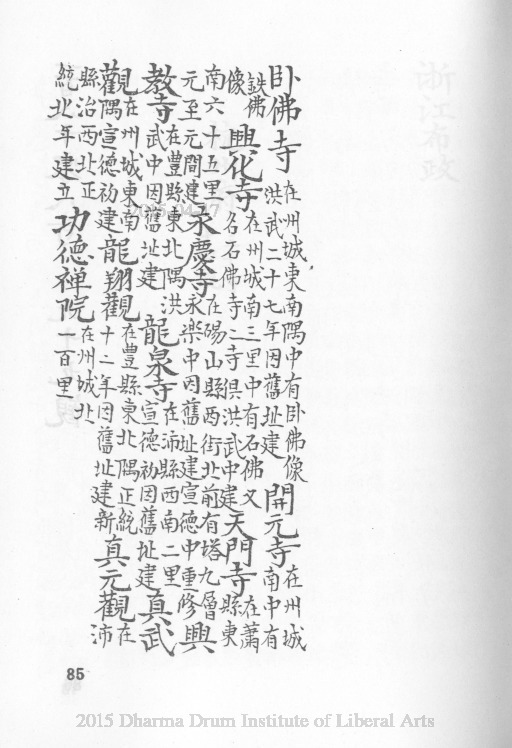 卧佛寺在州城東南隅中有卧佛像洪武二十七年因舊址建開元寺在州城南中有
鉄佛像興化寺在州城南三里中有石佛又名石佛寺二寺俱洪武中建天門寺在蕭縣東
南六十五里元至元間建永慶寺在碭山縣西街北前有塔九層永樂中因舊址建宣德中重修興
教寺在豐縣東北隅洪武中因舊址建龍泉寺在沛縣西南二里宣德初因舊址建真武
觀在州城東南隅宣德初建龍翔觀在豐縣東北隅正統十二年因舊址建新真元觀在沛
縣治西北正統北年建立功德禪院在州城北一百里
85
2015 Dharma Drum Institute of Liberal Arts